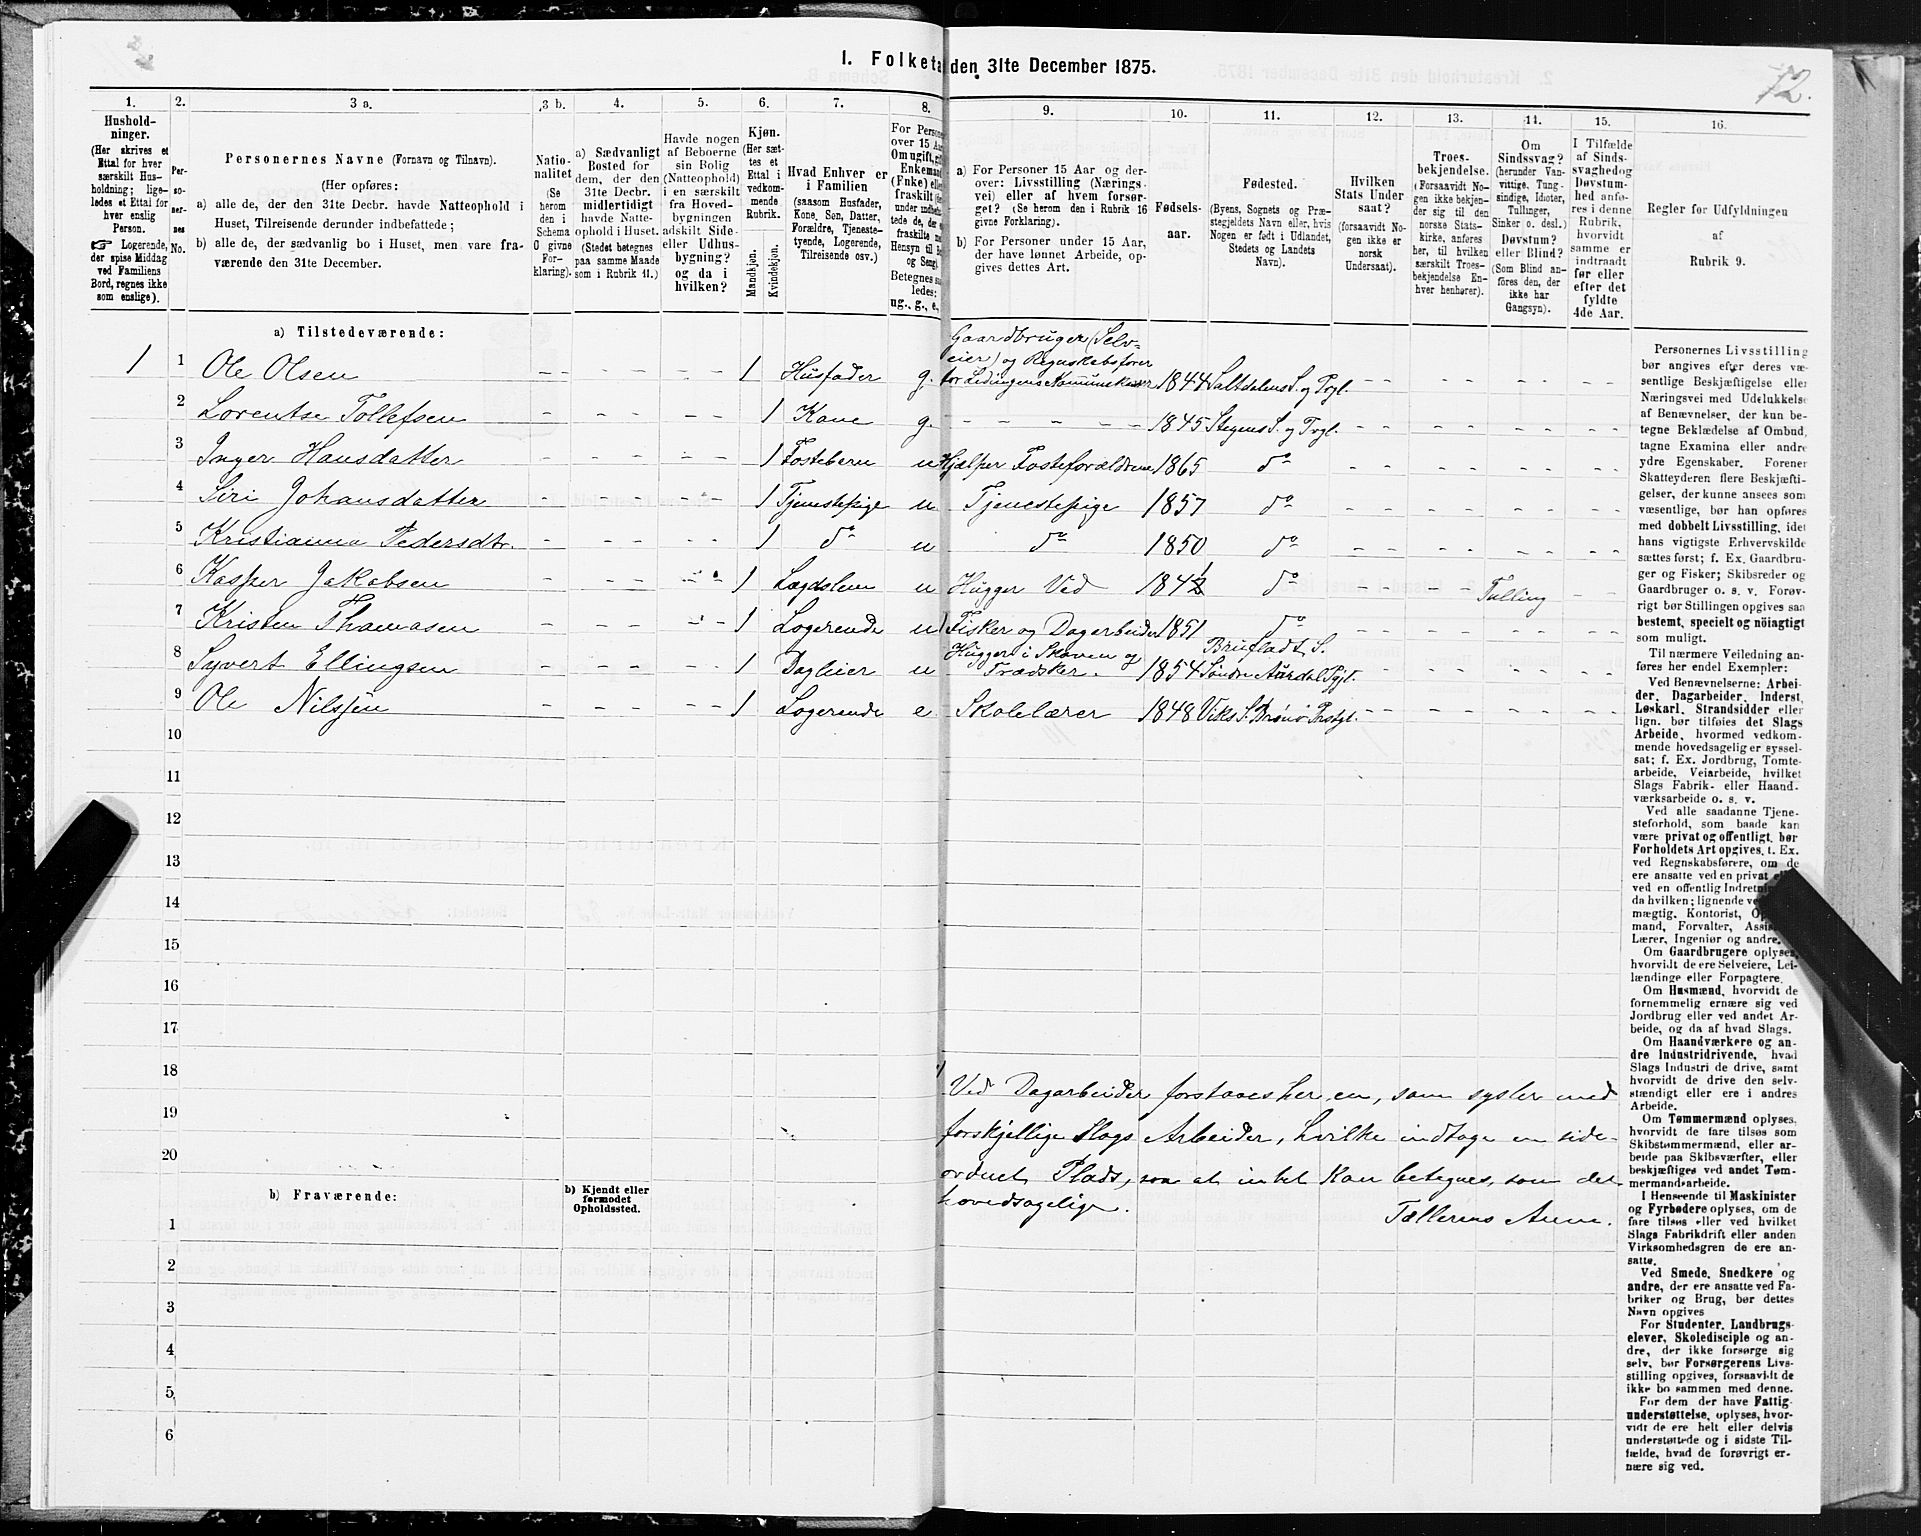 I. Folketa den 31te December 1875.
72.
1. 2. 3 a. 3 b. 4. 5. 6. 7. 8. 9. 10. 11. 12. 13. 14. 15. 16.
Hushold-
ninger.
(Her skrives et
Ettal for hver
særskilt Hus-
holdning; lige-
ledes et Ettal for
hver enslig
Person.
☞ Logerende,
der spise Middag
ved Familiens
Bord, regnes ikke
som enslige).
Per-
so-
ner-
nes
No.
Personernes Navne (Fornavn og Tilnavn).
(Her opføres:
a) alle de, der den 31te Decbr. havde Natteophold i
Huset, Tilreisende derunder indbefattede;
b) alle de, der sædvanlig bo i Huset, men vare fra-
værende den 31te December.
Natio-
nalitet
(Se
herom
den i
Schema
O givne
For-
klaring).
a) Sædvanligt
Bosted for
dem, der den
31te Decbr.
midlertidigt
havde Natte-
ophold i Huset.
(Stedet betegnes
paa samme Maade
som i Rubrik 11.)
Havde nogen
af Beboerne
sin Bolig
(Natteophold)
i en særskilt
fra Hoved-
bygningen
adskilt Side-
eller Udhus-
bygning?
og da i
hvilken?
Kjøn.
(Her sæt-
tes et
Ettal i
vedkom-
mende
Rubrik.
Mandkjøn.
Kvindekjøn.
Hvad Enhver er
i Familien
(saasom Husfader,
Kone, Søn, Datter,
Forældre, Tjeneste-
tyende, Logerende,
Tilreisende osv.)
For Persone
over 15 Aa
Om ugift, gif
Enkemand
(Enke) elle
fraskilt
under indbefat-
tede de, der
fraskilte m
Hensyn til
og Seng).
Betegnes sa
ledes:
ug., g., e,
a) For Personer 15 Aar og der-
over: Livsstilling (Nærings-
vei) eller af hvem forsør-
get? (Se herom den i Rubrik 16
givne Forklaring).
b) For Personer under 15 Aar,
der have lønnet Arbeide, op-
gives dettes Art.
Fødsels-
aar.
Fødested.
(Byens, Sognets og Præ-
stegjeldets Navn eller, hvis
Nogen er født i Udlandet,
Stedets og Landets
Navn).
Hvilken
Stats Under
saat?
(forsaavidt No-
gen ikke er
norsk
Undersaat).
Troes-
bekjendelse.
(Forsaavidt No-
gen ikke bekjen-
der sig til den
norske Stats-
kirke, anføres
her, til hvilken
særskilt Troes-
bekjendelse En-
hver henhører).
Om
Sindssvag?
(herunder Van-
vittige, Tung-
sindige, Idioter,
Tullinger,
Sinker o. desl.)
Døvstum?
eller Blind?
(Som Blind an-
føres den, der
ikke har
Gangsyn).
I Tilfælde
af Sinds-
svaghed og
Døvstum-
hed anfø-
res i denne
Rubrik,
hvorvidt
samme er
indtraadt
før eller
efter det
fyldte
4de Aar.
Regler for Udfyldningen
af
Rubrik 9.
a) Tilstedeværende:
Gaardbruger (Selv-
eier) og Regnskabsfører
1 1 Ole Olsen 1 Husfader g. for Ledingens Kommunekasse 1844 Saltdalens S. og Pgl.
2 Lorentse Tollefsen 1 Kone g. 1845 Stegens S. og Pgl.
3 Inger Hansdatter 1 Fostebern u Hjælper Fosteforældrene 1865 do
4 Siri Johansdatter 1 Tjenestepige u Tjenestepige 1857 do
5 Kristianna Pedersdtr. 1 do u do 1850 do
6 Kasper Jakobsen 1 Lægdslem u Hugger Ved 1841 do Tulling
7 Kristen Thomasen 1 Logerende u 1) Fisker og Dagarbeider 1851 do
Hugger i Skoven og Brufladt S.
8 Syvert Ellingsen 1 Dagleier u Træsker. 1854 Søndre Aurdal Pgjl.
9 Ole Nilssen 1 Logerende e Skolelærer 1848 Viks S. Brønø Prstgl.
10
11
12
13
14
15
16
17
18
19
20
1) Ved Dagarbeider forstaaes her en, som sysler med
forskjellige Slags Arbeider, hvilke indtage en side-
ordnet Plads, saa at intet kan betegnes, som det
hovedsagelige.
Tællerens Anm.
b) Fraværende:
b) Kjendt eller
formodet
Opholdssted.
1
2
3
4
5
6
Personernes Livsstilling
bør angives efter deres væ-
sentlige Beskjæftigelse eller
Næringsvei med Udelukkelse
af Benævnelser, der kun be-
tegne Beklædelse af Ombud,
tagne Examina eller andre
ydre Egenskaber. Forener
Skatteyderen flere Beskjæfti-
gelser, der kunne ansees som
væsentlige, bør han opføres
med dobbelt Livsstilling, idet
hans vigtigste Erhvervskilde
sættes først; f. Ex. Gaardbru-
ger og Fisker; Skibsreder og
Gaardbruger o. s. v. Forøv-
rigt bør Stillingen opgives saa
bestemt, specielt og nöiagtigt
som muligt.
Til nærmere Veiledning an-
føres her endel Exempler:
Ved Benævnelserne: Arbei-
der, Dagarbeider, Inderst,
Løskarl, Strandsidder eller
lign. bør tilføies det Slags
Arbeide, hvormed vedkom-
mende hovedsagelig er syssel-
sat; f. Ex. Jordbrug, Tomte-
arbeide, Veiarbeide, hvilket
Slags Fabrik- eller Haand-
værksarbeide o. s. v.
Ved alle saadanne Tjene-
steforhold, som baade kan
være privat og offentligt, bør
Forholdets Art opgives, t. Ex.
ved Regnskabsførere, om de
ere ansatte ved en privat
ved en offentlig Indretni
da hvilken; lignende ve
mægtig, Kontorist, O
mand, Forvalter, Assis
Lærer, Ingeniør og andre.
Om Gaardbrugere oplyses,
hvorvidt de ere Selveiere, Lei-
lændinge eller Forpagtere.
Om Husmænd, hvorvidt de
fornemmelig ernære sig ved
Jordbrug eller ved andet Ar-
beide, og da af hvad Slags.
Om Haandværkere og an-
dre Industridrivende, hvad
Slags Industri de drive, samt
hvorvidt de drive den selv-
stændigt eller ere i andres
Arbeide.
Om Tømmermænd oplyses,
hvorvidt de fare tilsøs som
Skibstømmermænd, eller ar-
beide paa Skibsværfter, eller
beskjæftiges ved andet Tøm-
mermandsarbeide.
I Henseende til Maskinister
og Fyrbødere oplyses, om de
fare tilsøs eller ved hvilket
Slags Fabrikdrift eller anden
Virksomhedsgren de ere an-
satte.
Ved Smede, Snedkere og
andre, der ere ansatte ved Fa-
briker og Brug, bør dettes
Navn opgives
For Studenter, Landbrugs-
elever, Skoledisciple og an-
dre, der ikke forsørge sig
selv, bør Forsørgerens Livs-
stilling opgives, forsaavidt de
ikke bo sammen med denne.
For dem der have Fattig-
understøttelse, oplyses, hvor-
vidt de ere helt eller delvis
understøttede og i sidste Til-
fælde, hvad de forøvrigt er-
nære sig ved.